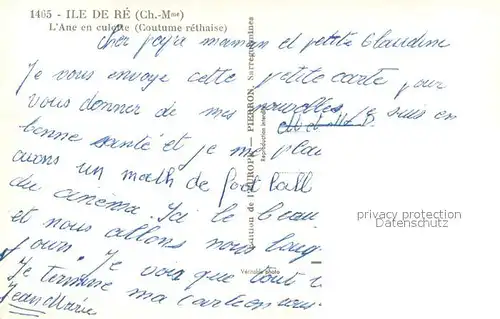 1465 - ILE DE RÉ (Ch.-Mme)
L'Ane en culotte (Coutume réthaise)
Cher papa maman et petite Claudine
Je vous envoye cette petite carte pour
vous donner de mes nouvelles. Je suis en
bonne santé et je me plai
avons un math de foot ball
du cinéma. Ici le beau
et nous allons nous
jours. Je vois que tout
Je termine ma carte en vous
Jean Marie
EUROPE — PIERRON, Sarreguemines
Reproduction interdite
Véritable photo
privacy protection
Datenschutz